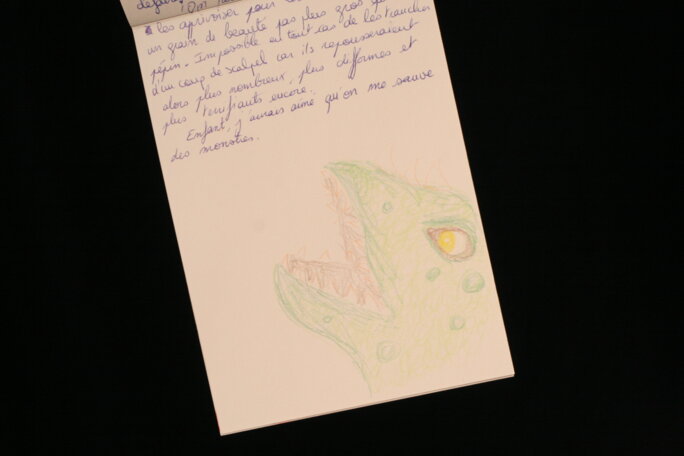 les apprivoiser pour
un grain de beauté pas plus gros qu'un
pépin. Impossible en tout cas de les trancher
d'un coup de scalpel car ils repousseraient
alors plus nombreux, plus difformes et
plus terrifiants encore.
Enfant, j'aurais aimé qu'on me sauve
des monstres.